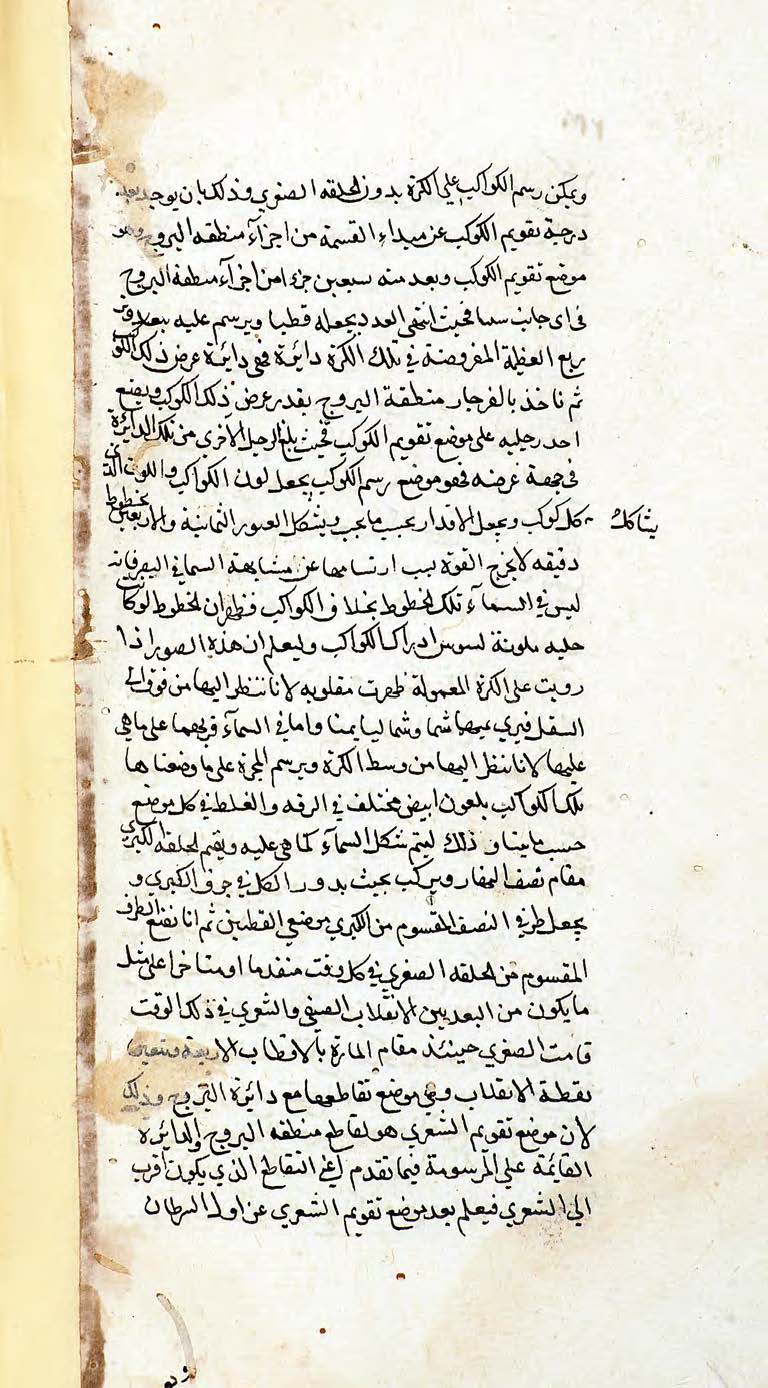 ويمكن رسم الكواكب علي الكرة بدون الحلقه الصغري وذلك بان يوجد بعد
درجة تقويم الكوكب عن مبداء القسمة من اجزآء منطقه البروج وهو
موضع تقويم الكوكب وبعد منه سبعين جزءا من اجزآء منطقة البروج
في اي جانب شينا فحيث انتهى العدد يجعله قطبا ويرسم عليه ببعد وتر
ربع العظمة المفروضة في تلك الكرة دائرة فهي دائرة عرض ذلك الكوكب
ثم ناخذ بالفرجار منطقة البروج بقدر عرض ذلك الكوكب ويضع
احد رجليه على موضع تقويم الكوكب فحيث بلغ الرجل الآخري من تلك الدائرة
في جهة عرضه فهو موضع رسم الكوكب يجعل لون الكواكب واللون الذي
يشاكل كل كوكب ويجعل الاقدار بحسب ما يجب ويشكل الصور الثمانية والاربعين بخطوط
دقيقه لا يخرج القوة بسبب ارتسامها عن مشابهة السما في البصر فانه
ليس في السمآء تلك الخطوط بخلاف الكواكب فظهر ان الخطوط لو كانت
جليه ملونة لشوش ادراك الكواكب وليعلم ان هذه الصور اذا
رويت على الكرة المعمولة ظهرت مقلوبه لانا ننظر اليها من فوق الي
السفل فيري يمينها شما وشماليا يمنا واما في السمآء فربهما على ما هي
عليها لانا ننظر اليها من وسط الكرة ويرسم المجرة على ما وضعنا ها
بتلك الكواكب بلون ابيض مختلف في الرقه والغلظ في كل موضع
حسب ما بينا وذلك ليتم شكل السمآء كما هي عليه ويقيم الحلقه الكبري
مقام نصف النهار ويركب بحيث يدور الكل في جرف الكبري و
يجعل طرفي النصف المقسوم من الكبري موضعي القطبين ثم انا نضع الطرف
المقسوم من الحلقه الصغري في كل وقت متقدما او متاخرا على مثل
ما يكون من البعد بين الانقلاب الصيفي والشعري في ذلك الوقت
قامت الصغري حينئذ مقام المارة بالاقطاب الاربعة
نقطة الانقلاب وهي موضع تقاطعها مع دائرة البروج وذلك
لان موضع تقويم الشعري هو تقاطع منطقه البروج والدائرة
القايمة علي المرسومة فيما تقدم اعني التقاطع الذي يكون اقرب
الي الشعري فيعلم بعد موضع تقويم الشعري عن اول السرطان